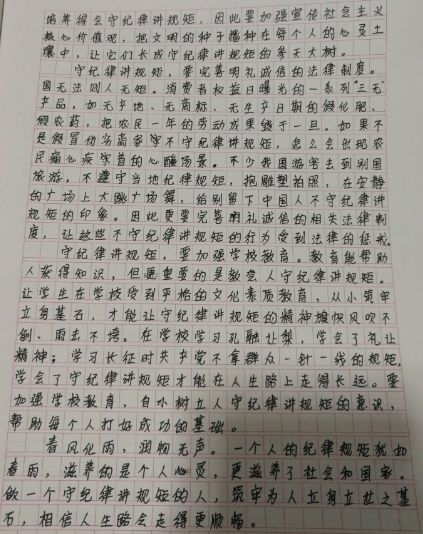 培养得会守纪律讲规矩，因此要加强宣传社会主义
核心价值观，把文明的种子播种在每个人的心灵土
壤中，让它们长成守纪律讲规矩的参天大树。
守纪律讲规矩，要完善明礼诚信的法律制度。
国无法则人无矩。消费者权益日曝光的一系列“三无”
产品，如无产地、无商标、无生产日期的假化肥、
假农药，把农民一年的劳动成果毁于一旦。如果不
是假冒伪劣商家守不守纪律讲规矩，怎么会出现农
民痛心疾首的心酸场景。不少我国游客去到别国
旅游，不遵守当地纪律规矩，抱雕塑拍照，在安静
的广场上大跳广场舞，给别留下中国人不守纪律讲
规矩的印象。因此更要完善明礼诚信的相关法律制
度，让这些不守纪律讲规矩的行为受到法律的惩戒。
守纪律讲规矩，要加强学校教育。教育能帮助
人获得知识，但更重要的是教会人守纪律讲规矩。
让学生在学校受到严格的文化素质教育、从小筑牢
立身基石，才能让守纪律讲规矩的精神旗帜风吹不
倒、雨击不垮。在学校学习孔融让梨，学会了礼让
精神；学习长征时共产党不拿群众一针一线的规矩，
学会了守纪律讲规矩才能在人生路上走得长远。要
加强学校教育，自小树立人守纪律讲规矩的意识，
帮助每个人打好成功的基础。
春风化雨，润物无声。一个人的纪律规矩就如
春雨，滋养的是个人心灵，更滋养了社会和国家。
做一个守纪律讲规矩的人，筑牢为人立身立世之基
石，相信人生路会走得更顺畅。